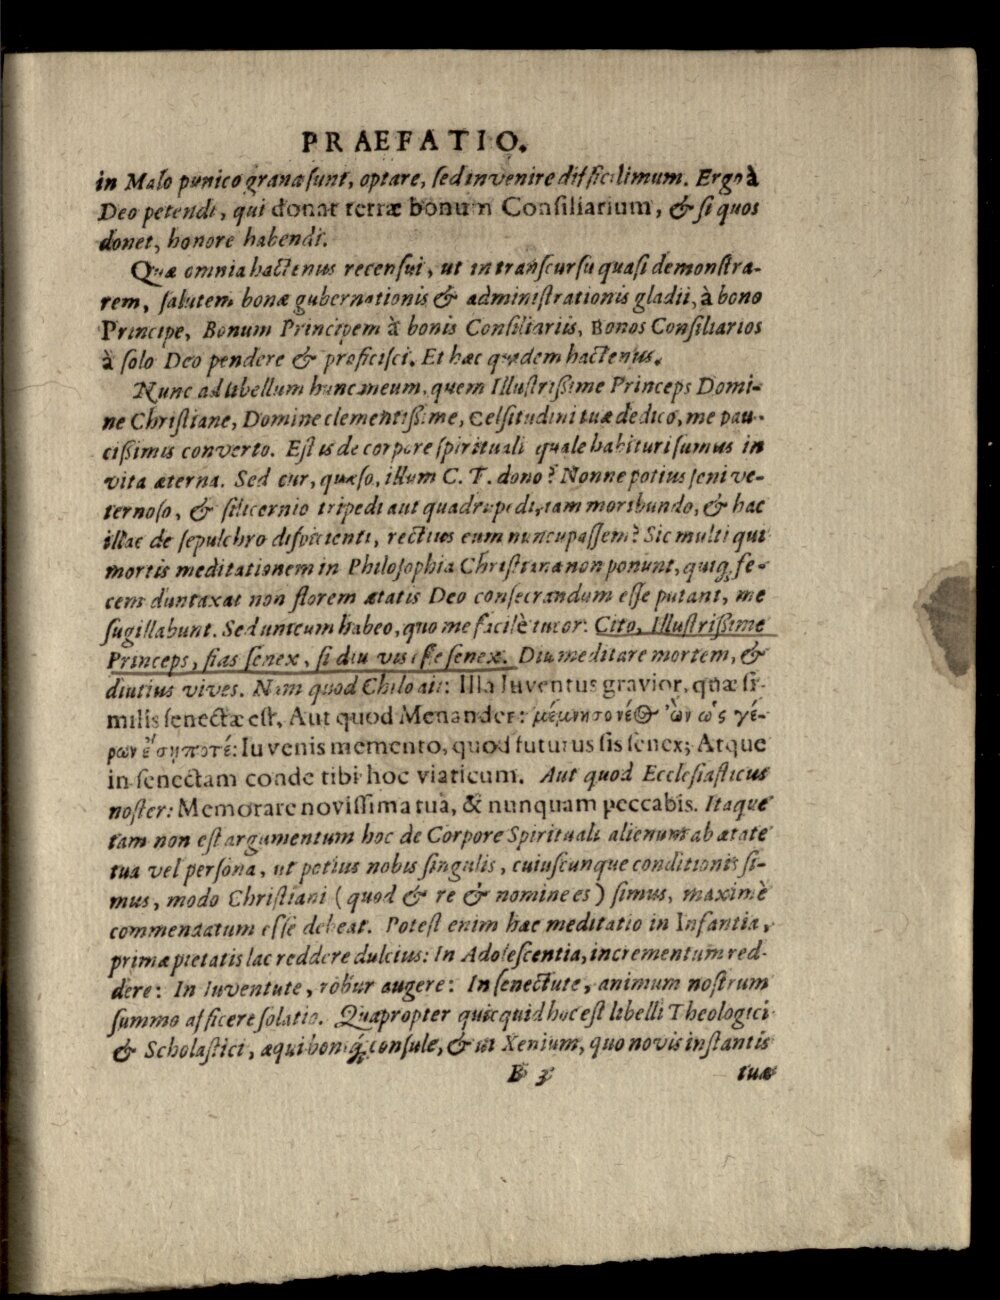 PRAEFATIO.
in Malo punico grana sunt, optare, sed invenire difficilimum. Ergo à
Deo petendi, qui donat terræ bonum Consiliarium, & si quos
donet, honore habendi.
Quæ omnia hactenus recensui, ut in transcursu quasi demonstra-
rem, salutem bonæ gubernationis & administrationis gladii, à bono
Principe, Bonum Principem à bonis Consiliariis, Bonos Consiliarios
à solo Deo pendere & proficisci. Et hæc quidem hactenus.
Nunc ad libellum hunc meum, quem Illustrißime Princeps Domi-
ne Christiane, Domine clementißime, Celsitudini tuæ dedico, me pau-
cißimis converto. Est is de corpore spirituali quale habituri sumus in
vita æterna. Sed cur, quæso, illum C. T. dono? Nonne potius seni ve-
ternoso, & silicernio tripedi aut quadrupedi, tam moribundo, & hac
illac de sepulchro dispicienti, rectius eum nuncupassem? Sic multi qui
mortis meditationem in Philosophia Christiana non ponunt, quiq; fe-
cem duntaxat non florem ætatis Deo consecrandum esse putant, me
sugillabunt. Sed unicum habeo, quo me facilè tueor: Cito, Illustrißime
Princeps, fias senex, si diu vis esse senex. Diu meditare mortem, &
diutius vives. Nam quod Chilo ait: Illa Iuventus gravior, quæ si-
milis senectæ est, Aut quod Menander: μέμνησο νέ⊙ ὢν ὡς γέ-
ρων ἔσῃ ποτέ: Iuvenis memento, quod futurus sis senex; Atque
in senectam conde tibi hoc viaticum. Aut quod Ecclesiasticus
noster: Memorare novissima tua, & nunquam peccabis. Itaque
tam non est argumentum hoc de Corpore Spirituali alienum ab ætate
tua vel persona, ut potius nobis singulis, cuiuscunque conditionis si-
mus, modo Christiani (quod & re & nomine es) simus, maximè
commendatum esse debeat. Potest enim hæc meditatio in Infantia,
primæ pietatis lac reddere dulcius: In Adolescentia, incrementum red-
dere: In Iuventute, robur augere: In senectute, animum nostrum
summo afficere solatio. Quapropter quicquid hoc est libelli Theologici
& Scholastici, æqui boniq́; consule, & ut Xenium, quo novis instantis
B 3 tuæ